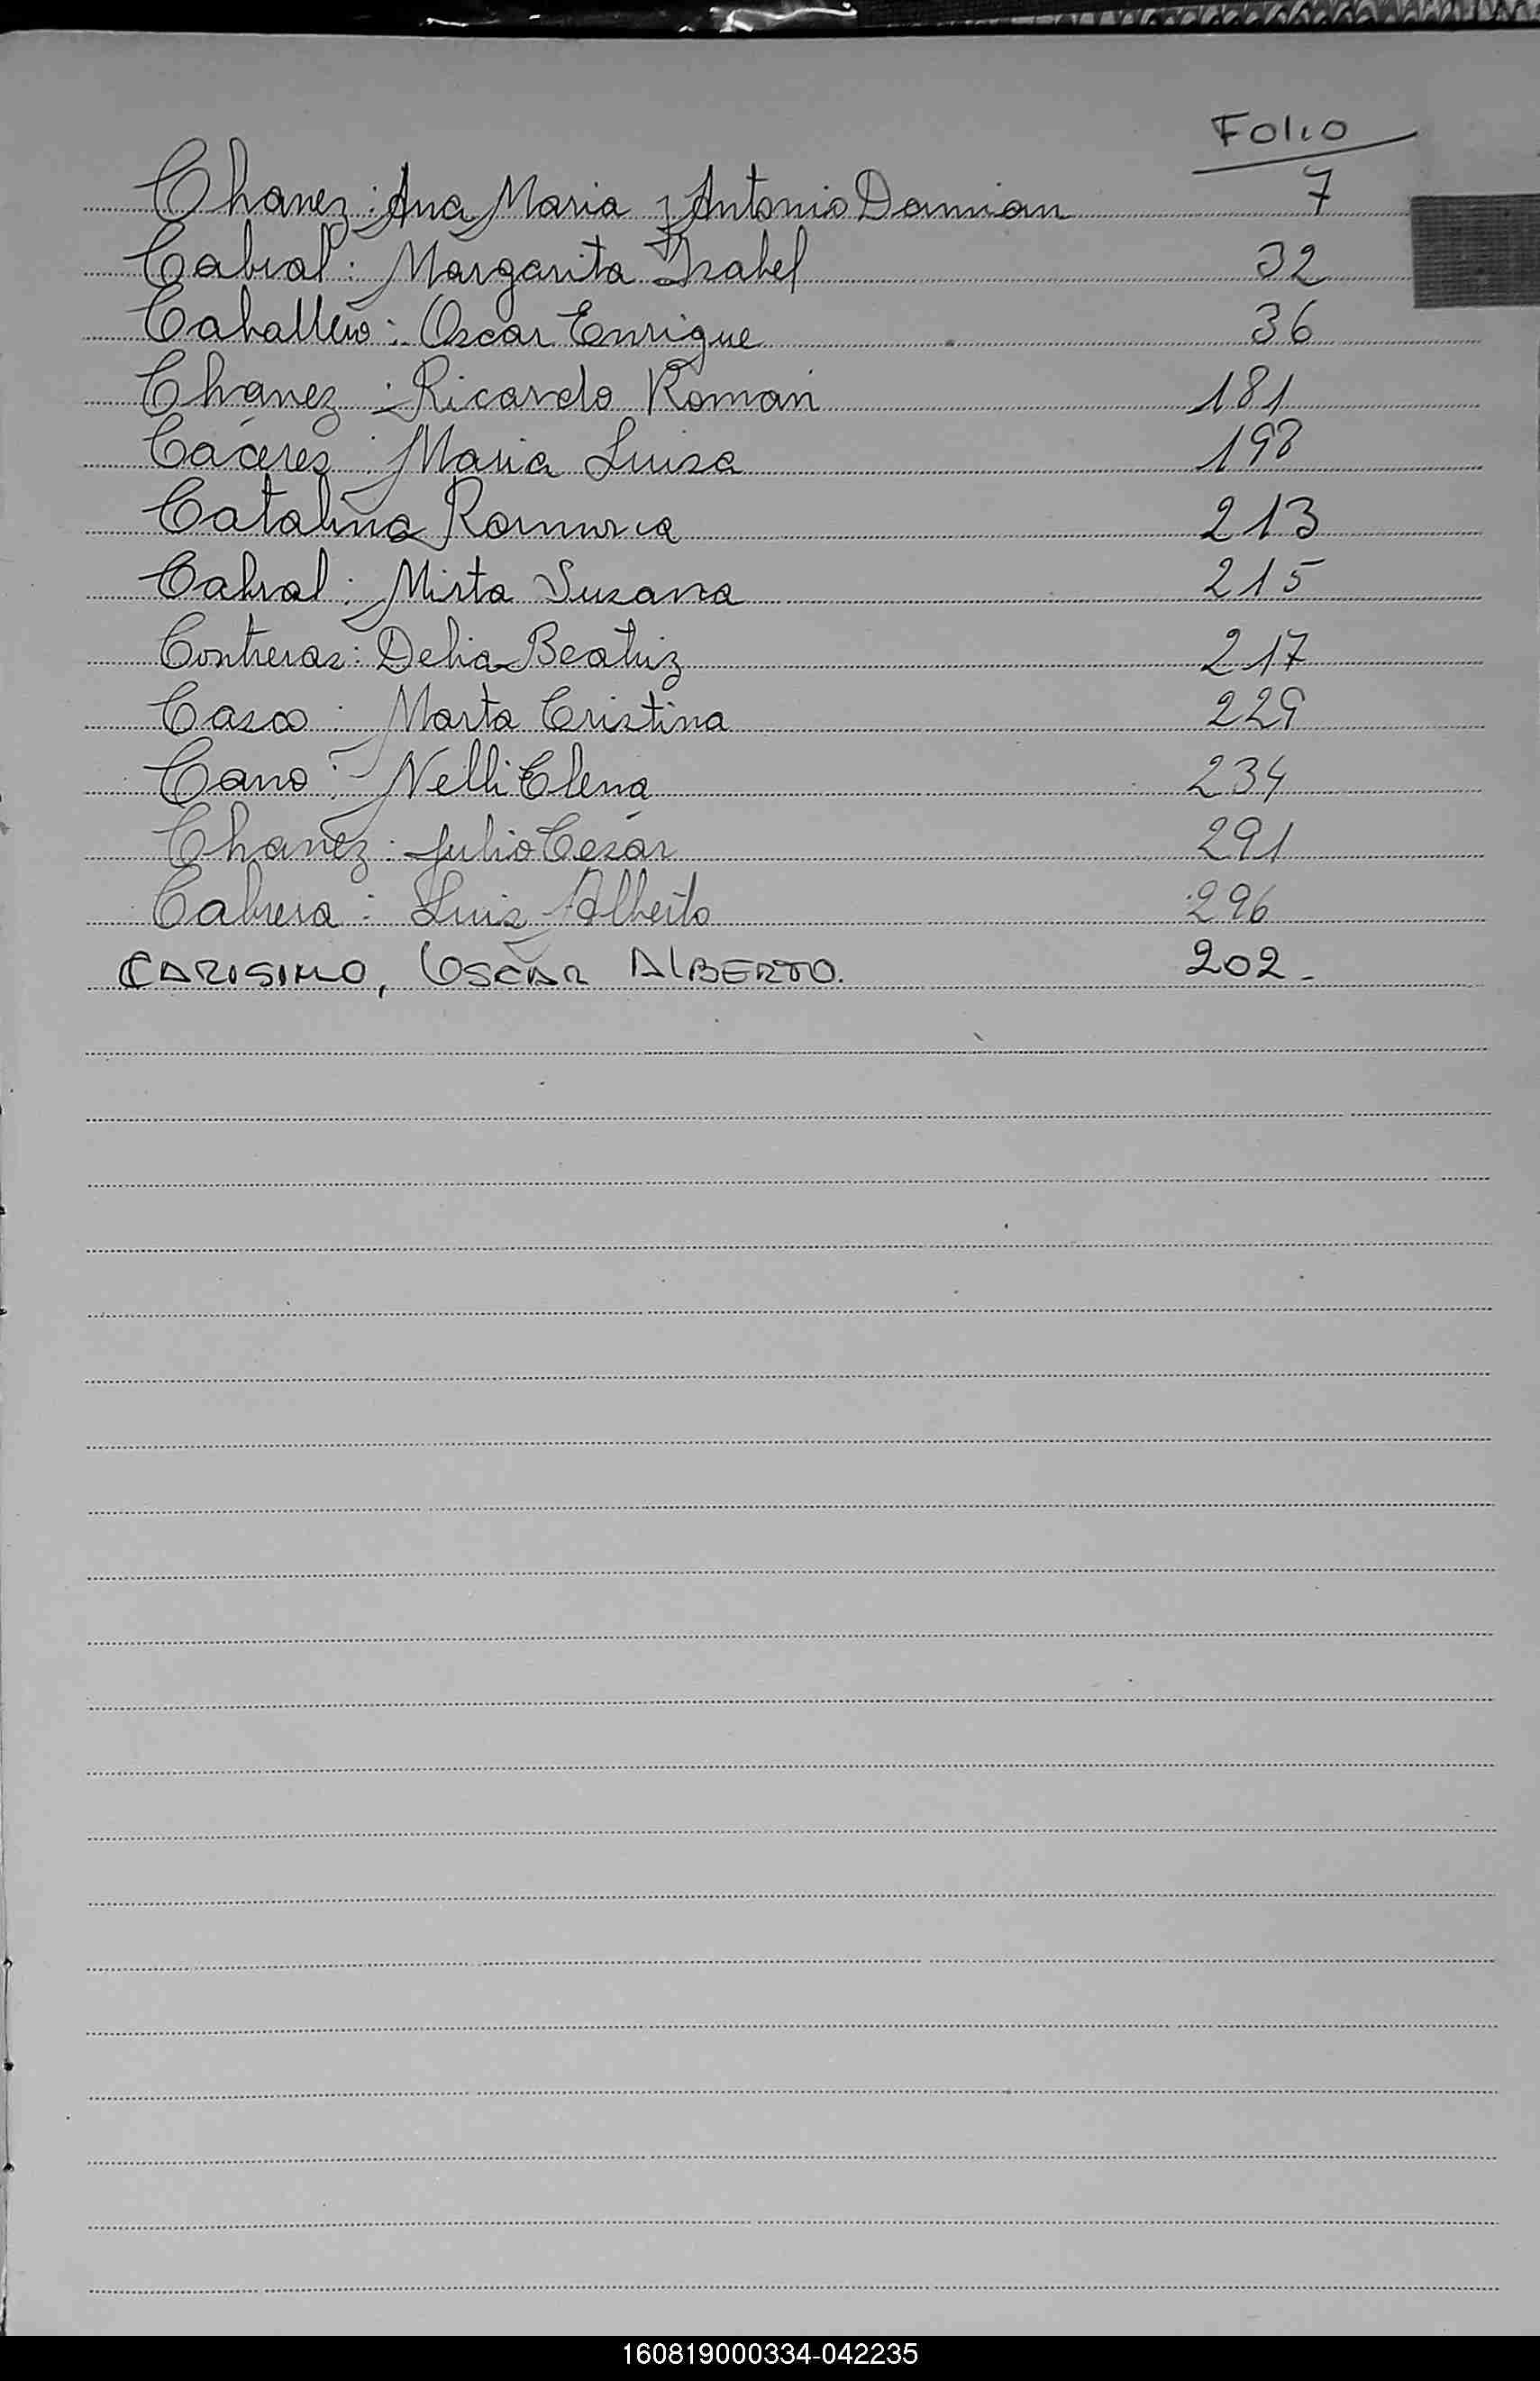 Folio
Chanez: Ana Maria y Antonio Damian 7
Cabral: Margarita Isabel 32
Caballero: Oscar Enrique 36
Chanez: Ricardo Roman 181
Cáceres: Maria Luisa 198
Catalina Romero 213
Cabral: Mirta Susana 215
Contreras: Delia Beatriz 217
Casco: Marta Cristina 229
Cano: Nelli Elena 234
Chanez: Julio Cesár 291
Cabrera: Luis Alberto 296
CARISIMO, OSCAR ALBERTO. 202-
160819000334-042235